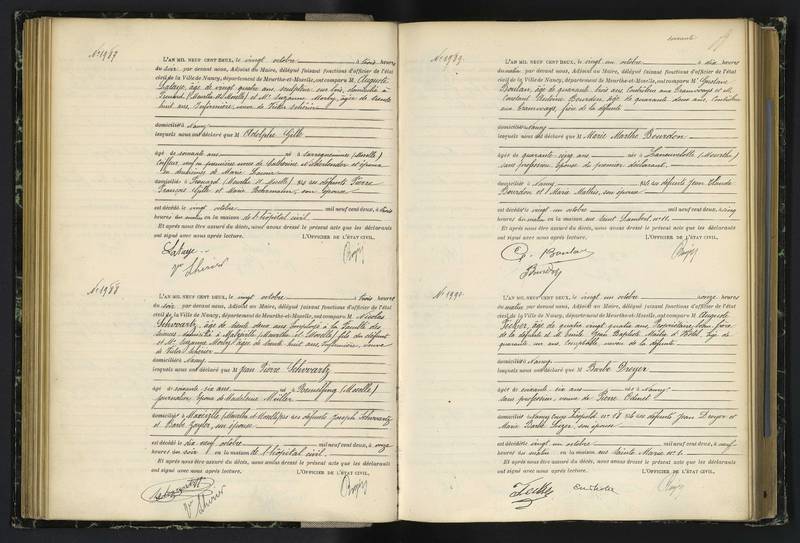 N° 1987
L'AN MIL NEUF CENT DEUX, le vingt octobre à trois heures
du soir par devant nous, Adjoint au Maire, délégué faisant fonctions d'officier de l'état
civil de la Ville de Nancy, département de Meurthe-et-Moselle, ont comparu M. Auguste
âgé de vingt quatre ans, sculpteur sur bois, domicilié à
(Meurthe et Moselle) et Me Suzanne Morby, âgée de trente
huit ans, Infirmière, veuve de Victor
domiciliés Nancy
lesquels nous ont déclaré que M Adolphe Gille
âgé de soixante ans né à Sarreguemines (Moselle)
coiffeur, veuf en premières noces de Catherine et époux
en deuxièmes de Marie
domicilié à (Meurthe et Moselle) fils de défunts Pierre
François Gille et Marie son épouse
est décédé le vingt octobre mil neuf cent deux, à
heures du matin en la maison de l'hôpital civil
Et après nous être assuré du décès, nous avons dressé le présent acte que les déclarants
ont signé avec nous après lecture. L'OFFICIER DE L'ÉTAT CIVIL,
N° 1988
L'AN MIL NEUF CENT DEUX, le vingt octobre à trois heures
du soir par devant nous, Adjoint au Maire, délégué faisant fonctions d'officier de l'état
civil de la Ville de Nancy, département de Meurthe-et-Moselle, ont comparu M. Nicolas
Schwartz, âgé de trente deux ans, employé à la Faculté des
sciences domicilié à Maxéville (Meurthe et Moselle) fils du défunt
et Me Suzanne Morby, âgée de trente huit ans, Infirmière, veuve
de Victor
domiciliés Nancy
lesquels nous ont déclaré que M Jean Pierre Schwartz
âgé de soixante six ans né à (Moselle)
journalier, époux de Madeleine Müller
domicilié à Maxéville (Meurthe et Moselle) fils de défunts Joseph Schwartz
et Barbe son épouse
est décédé le dix neuf octobre mil neuf cent deux, à onze
heures du soir en la maison de l'hôpital civil
Et après nous être assuré du décès, nous avons dressé le présent acte que les déclarants
ont signé avec nous après lecture. L'OFFICIER DE L'ÉTAT CIVIL,
soixante
N° 1989
L'AN MIL NEUF CENT DEUX, le vingt un octobre à dix heures
du matin par devant nous, Adjoint au Maire, délégué faisant fonctions d'officier de l'état
civil de la Ville de Nancy, département de Meurthe-et-Moselle, ont comparu M. Gustave
âgé de quarante trois ans, Contrôleur aux Tramways et M.
Constant Bourdon, âgé de quarante deux ans, Contrôleur
aux Tramways, frère de la défunte
domiciliés Nancy
lesquels nous ont déclaré que M Marie Marthe Bourdon
âgée de quarante cinq ans née à Laneuvelotte (Meurthe)
sans profession, épouse du premier déclarant
domiciliée à Nancy fille de défunts Jean Claude
Bourdon et Marie Mathis, son épouse
est décédée le vingt un octobre mil neuf cent deux, à cinq
heures du matin en la maison sise Saint Lambert n° 11
Et après nous être assuré du décès, nous avons dressé le présent acte que les déclarants
ont signé avec nous après lecture. L'OFFICIER DE L'ÉTAT CIVIL,
Bourdon
N° 1990
L'AN MIL NEUF CENT DEUX, le vingt un octobre à onze heures
du matin par devant nous, Adjoint au Maire, délégué faisant fonctions d'officier de l'état
civil de la Ville de Nancy, département de Meurthe-et-Moselle, ont comparu M. Auguste
âgé de quatre vingt quatre ans, Propriétaire, beau frère
de la défunte et Jean Baptiste âgé de
quarante un ans, comptable, neveu de la défunte
domiciliés Nancy
lesquels nous ont déclaré que M Barbe Dreyer
âgée de soixante six ans née à Nancy
sans profession, veuve de Pierre
domiciliée à Nancy Léopold n° 18 fille de défunts Jean Dreyer et
Marie Barbe son épouse
est décédée le vingt un octobre mil neuf cent deux, à neuf
heures du matin en la maison sise Sainte Marie n° 1
Et après nous être assuré du décès, nous avons dressé le présent acte que les déclarants
ont signé avec nous après lecture. L'OFFICIER DE L'ÉTAT CIVIL,